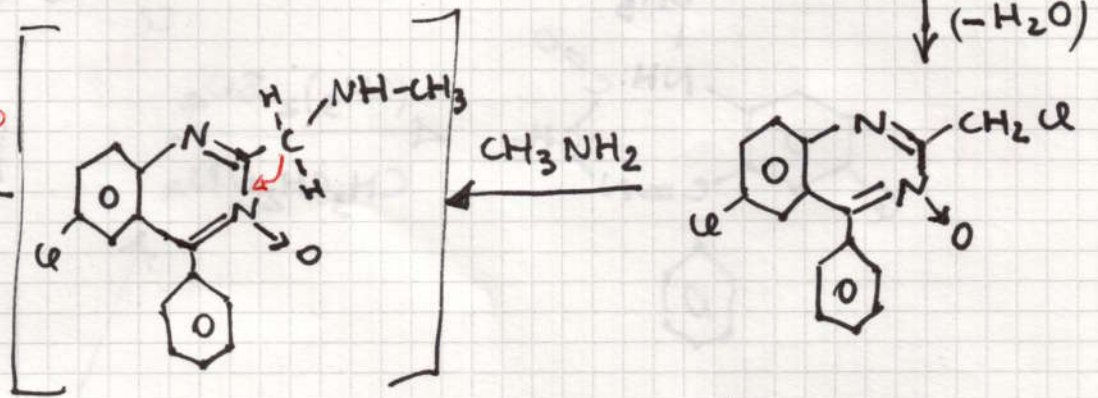 (-H2O)
H
NH-CH3
N
C
H
N
O
O
Cl
O
CH3NH2
N
CH2Cl
O
N
O
Cl
O